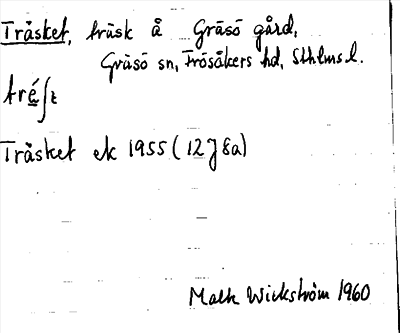 Träsket, träsk å Gräsö gård,
Gräsö sn, Frösåkers hd, Sthlms l.
Träsket ek 1955 (12J 8a)
Math Wickström 1960